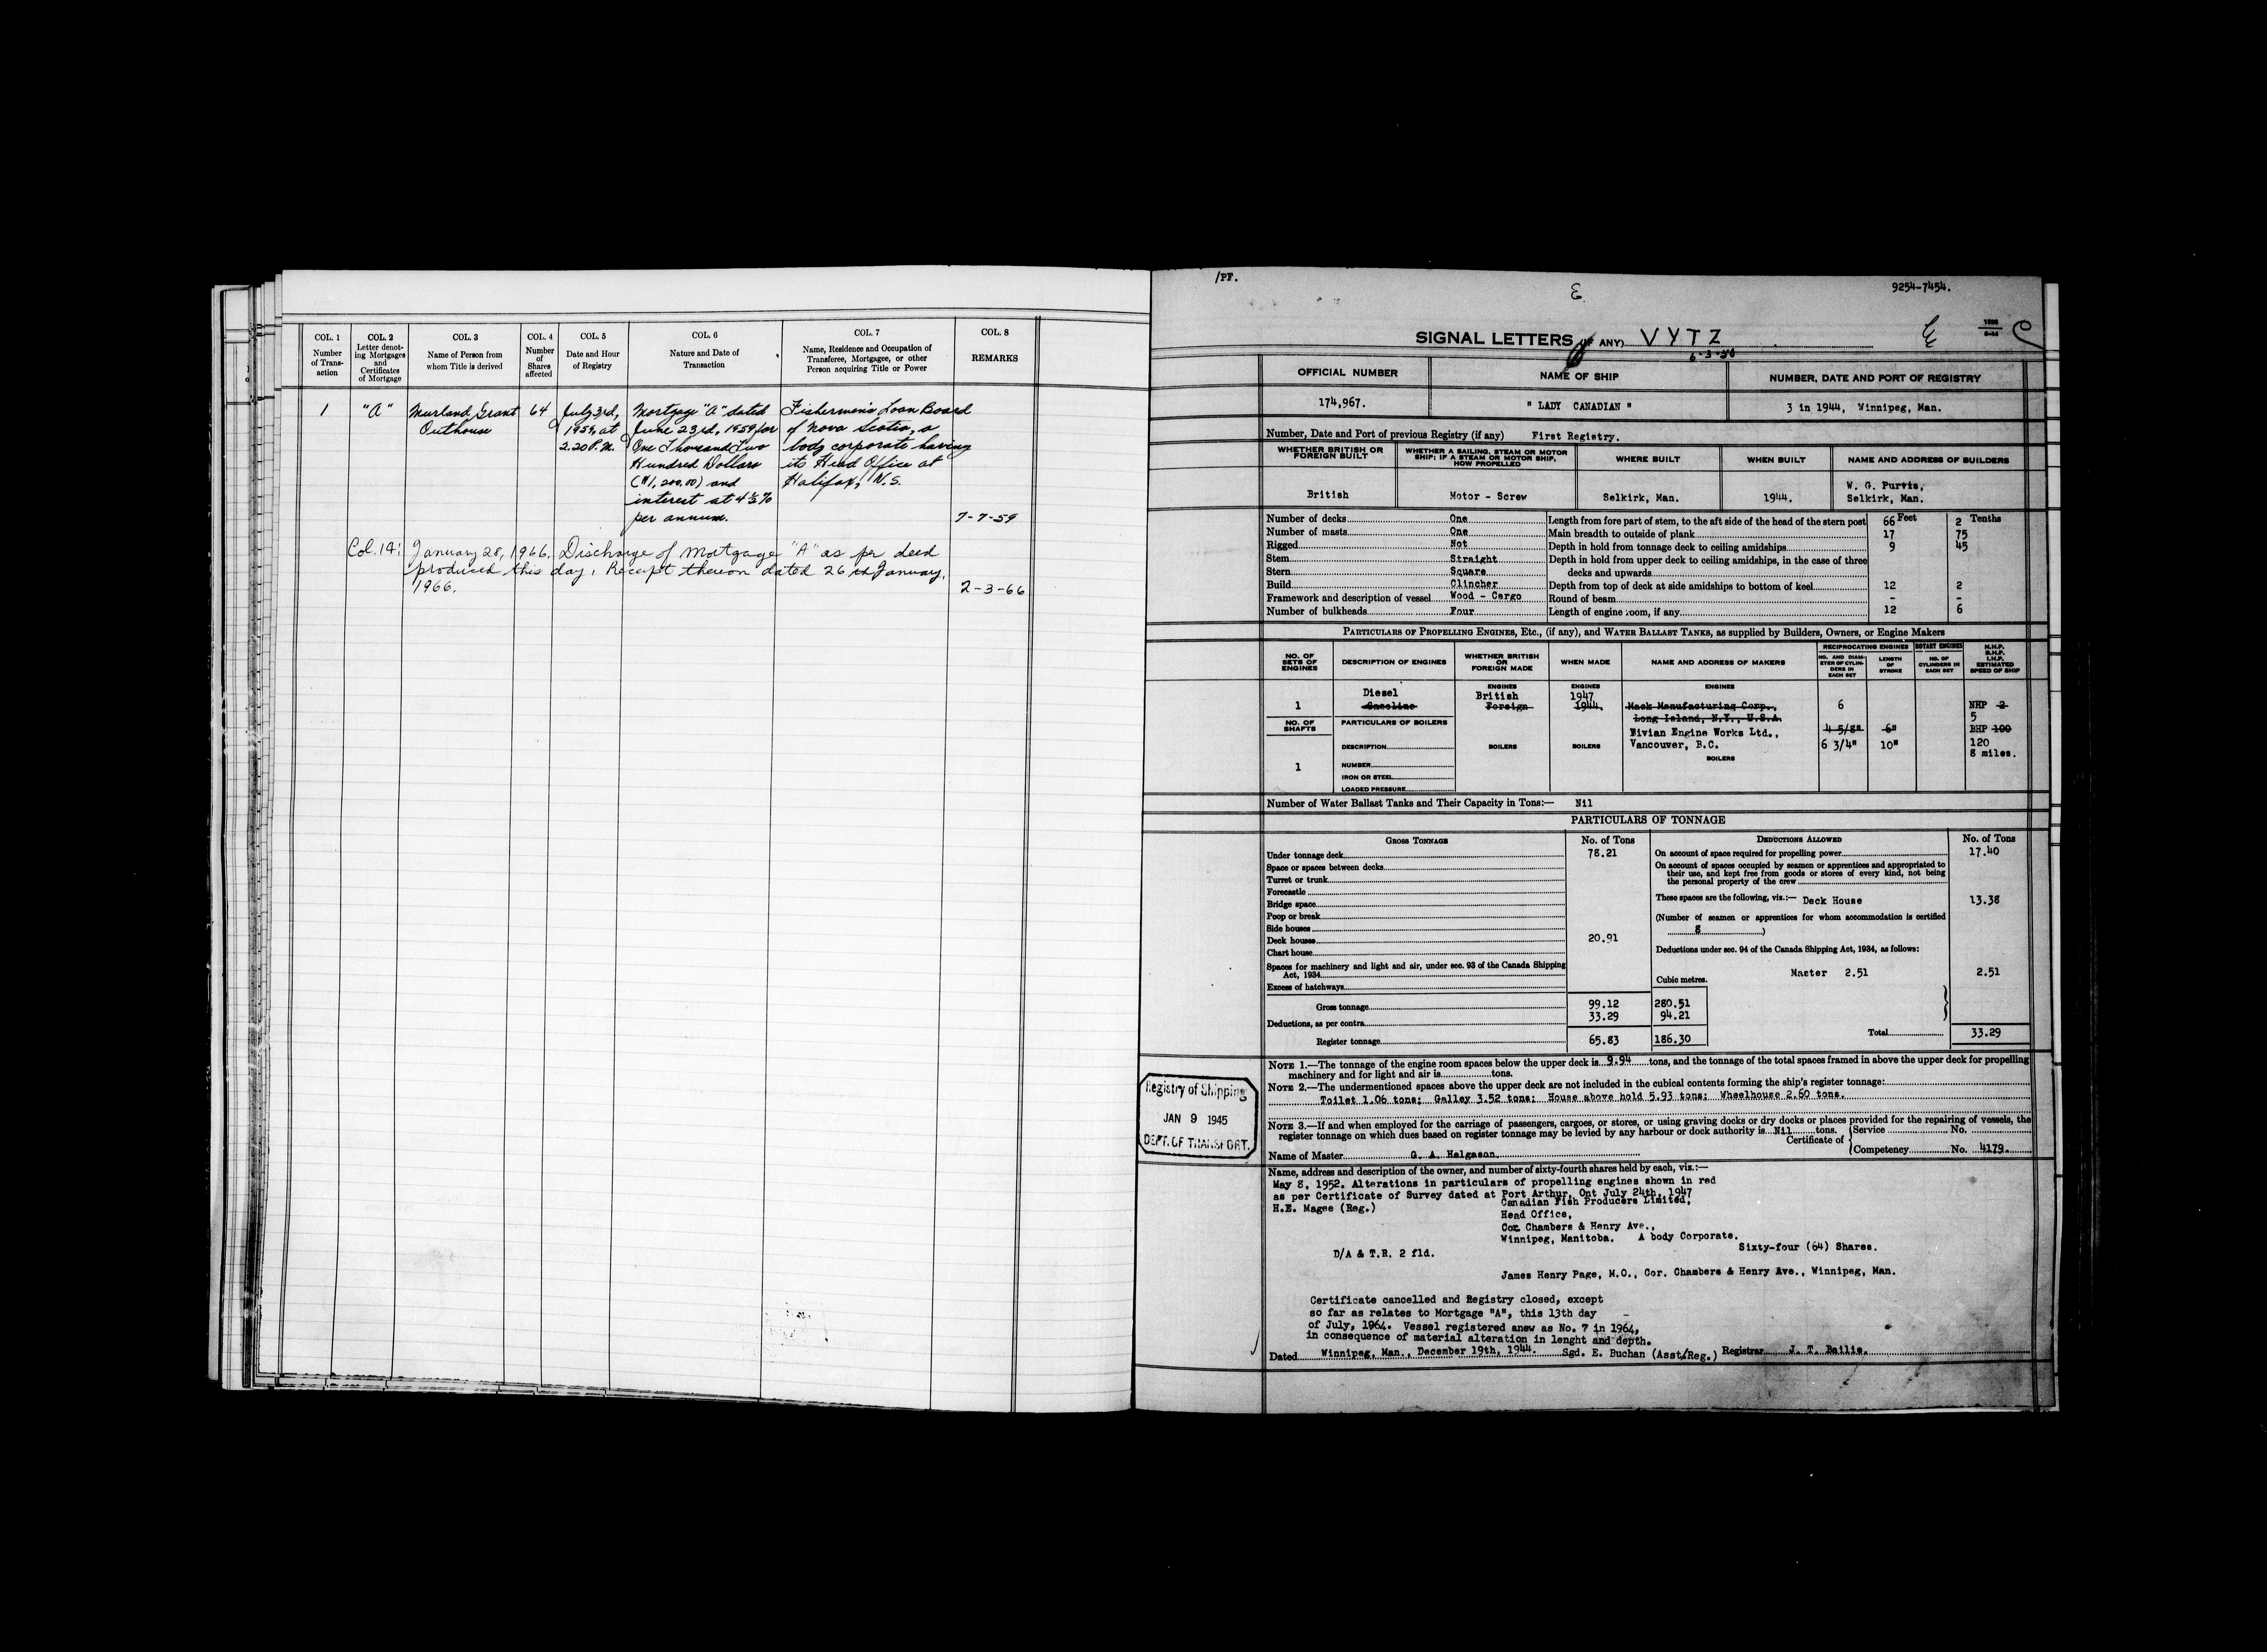 COL. 1
Number
of Trans-
action
COL. 2
Letter denot-
ing Mortgages
and
Certificates
of Mortgage
COL. 3
Name of Person from
whom Title is derived
COL. 4
Number
of
Shares
affected
COL. 5
Date and Hour
of Registry
COL. 6
Nature and Date of
Transaction
COL. 7
Name, Residence and Occupation of
Transferee, Mortgagee, or other
Person acquiring Title or Power
COL. 8
REMARKS
1
"A"
Murland Grant
Outhouse
64
July 3rd,
1959, at
2.20 P.M.
Mortgage "A" dated
June 23rd, 1959 for
One Thousand Two
Hundred Dollars
($1,200.00) and
interest at 4½%
per annum.
Fishermen's Loan Board
of Nova Scotia, a
body corporate having
its Head Office at
Halifax, N.S.
7-7-59
Col. 14: January 28, 1966. Discharge of Mortgage "A" as per deed
produced this day. Receipt thereon dated 26th January,
1966.
2-3-66
/PF.
E
9254-7454.
SIGNAL LETTERS (IF ANY) VYTZ
6-3-56
E
C
OFFICIAL NUMBER
NAME OF SHIP
NUMBER, DATE AND PORT OF REGISTRY
174,967.
" LADY CANADIAN "
3 in 1944, Winnipeg, Man.
Number, Date and Port of previous Registry (if any) First Registry.
WHETHER BRITISH OR
FOREIGN BUILT
WHETHER A SAILING, STEAM OR MOTOR
SHIP; IF A STEAM OR MOTOR SHIP,
HOW PROPELLED
WHERE BUILT
WHEN BUILT
NAME AND ADDRESS OF BUILDERS
British
Motor - Screw
Selkirk, Man.
1944.
W. G. Purvis,
Selkirk, Man.
Number of decks One
Number of masts One
Rigged Not
Stem Straight
Stern Square
Build Clincher
Framework and description of vessel Wood - Cargo
Number of bulkheads Four
Feet Tenths
Length from fore part of stem, to the aft side of the head of the stern post 66 2
Main breadth to outside of plank 17 75
Depth in hold from tonnage deck to ceiling amidships 9 45
Depth in hold from upper deck to ceiling amidships, in the case of three
decks and upwards
Depth from top of deck at side amidships to bottom of keel 12 2
Round of beam - -
Length of engine room, if any 12 6
PARTICULARS OF PROPELLING ENGINES, ETC., (if any), and WATER BALLAST TANKS, as supplied by Builders, Owners, or Engine Makers
NO. OF
SETS OF
ENGINES
DESCRIPTION OF ENGINES
WHETHER BRITISH
OR
FOREIGN MADE
WHEN MADE
NAME AND ADDRESS OF MAKERS
RECIPROCATING ENGINES
NO. AND DIAM-
ETER OF CYLIN-
DERS IN
EACH SET
LENGTH
OF
STROKE
ROTARY ENGINES
NO. OF
CYLINDERS IN
EACH SET
N.H.P.
B.H.P.
I.H.P.
ESTIMATED
SPEED OF SHIP
1
Diesel
Gasoline
ENGINES
British
Foreign
ENGINES
1947
1944.
ENGINES
Mack Manufacturing Corp.,
Long Island, N.Y., U.S.A.
Vivian Engine Works Ltd.,
Vancouver, B.C.
6
4 5/8"
6 3/4"
6"
10"
NHP 2
5
BHP 100
120
8 miles.
NO. OF
SHAFTS
1
PARTICULARS OF BOILERS
DESCRIPTION
NUMBER
IRON OR STEEL
LOADED PRESSURE
BOILERS
BOILERS
BOILERS
Number of Water Ballast Tanks and Their Capacity in Tons:— Nil
PARTICULARS OF TONNAGE
GROSS TONNAGE
No. of Tons
Under tonnage deck 78.21
Space or spaces between decks
Turret or trunk
Forecastle
Bridge space
Poop or break
Side houses
Deck houses 20.91
Chart house
Spaces for machinery and light and air, under sec. 93 of the Canada Shipping
Act, 1934
Excess of hatchways
Cubic metres.
Gross tonnage 99.12 280.51
Deductions, as per contra 33.29 94.21
Register tonnage 65.83 186.30
DEDUCTIONS ALLOWED
No. of Tons
On account of space required for propelling power 17.40
On account of spaces occupied by seamen or apprentices and appropriated to
their use, and kept free from goods or stores of every kind, not being
the personal property of the crew
These spaces are the following, viz.:— Deck House 13.38
(Number of seamen or apprentices for whom accommodation is certified
8 )
Deductions under sec. 94 of the Canada Shipping Act, 1934, as follows:
Master 2.51 2.51
Total 33.29
NOTE 1.—The tonnage of the engine room spaces below the upper deck is 9.94 tons, and the tonnage of the total spaces framed in above the upper deck for propelling
machinery and for light and air is tons.
NOTE 2.—The undermentioned spaces above the upper deck are not included in the cubical contents forming the ship's register tonnage:
Toilet 1.06 tons; Galley 3.52 tons; House above hold 5.93 tons; Wheelhouse 2.60 tons.
NOTE 3.—If and when employed for the carriage of passengers, cargoes, or stores, or using graving docks or dry docks or places provided for the repairing of vessels, the
register tonnage on which dues based on register tonnage may be levied by any harbour or dock authority is Nil tons.
Certificate of
Service No.
Competency No. 4179.
Name of Master G. A. Helgason.
Registry of Shipping
JAN 9 1945
DEPT. OF TRANSPORT.
Name, address and description of the owner, and number of sixty-fourth shares held by each, viz.:—
May 8, 1952. Alterations in particulars of propelling engines shown in red
as per Certificate of Survey dated at Port Arthur, Ont July 24th, 1947
H.E. Magee (Reg.)
Canadian Fish Producers Limited,
Head Office,
Cor. Chambers & Henry Ave.,
Winnipeg, Manitoba. A body Corporate.
Sixty-four (64) Shares.
D/A & T.R. 2 fld.
James Henry Page, M.O., Cor. Chambers & Henry Ave., Winnipeg, Man.
Certificate cancelled and Registry closed, except
so far as relates to Mortgage "A", this 13th day
of July, 1964. Vessel registered anew as No. 7 in 1964,
in consequence of material alteration in lenght and depth.
Dated Winnipeg, Man., December 19th, 1944. Sgd. E. Buchan (Asst/Reg.) Registrar J. T. Bailie.